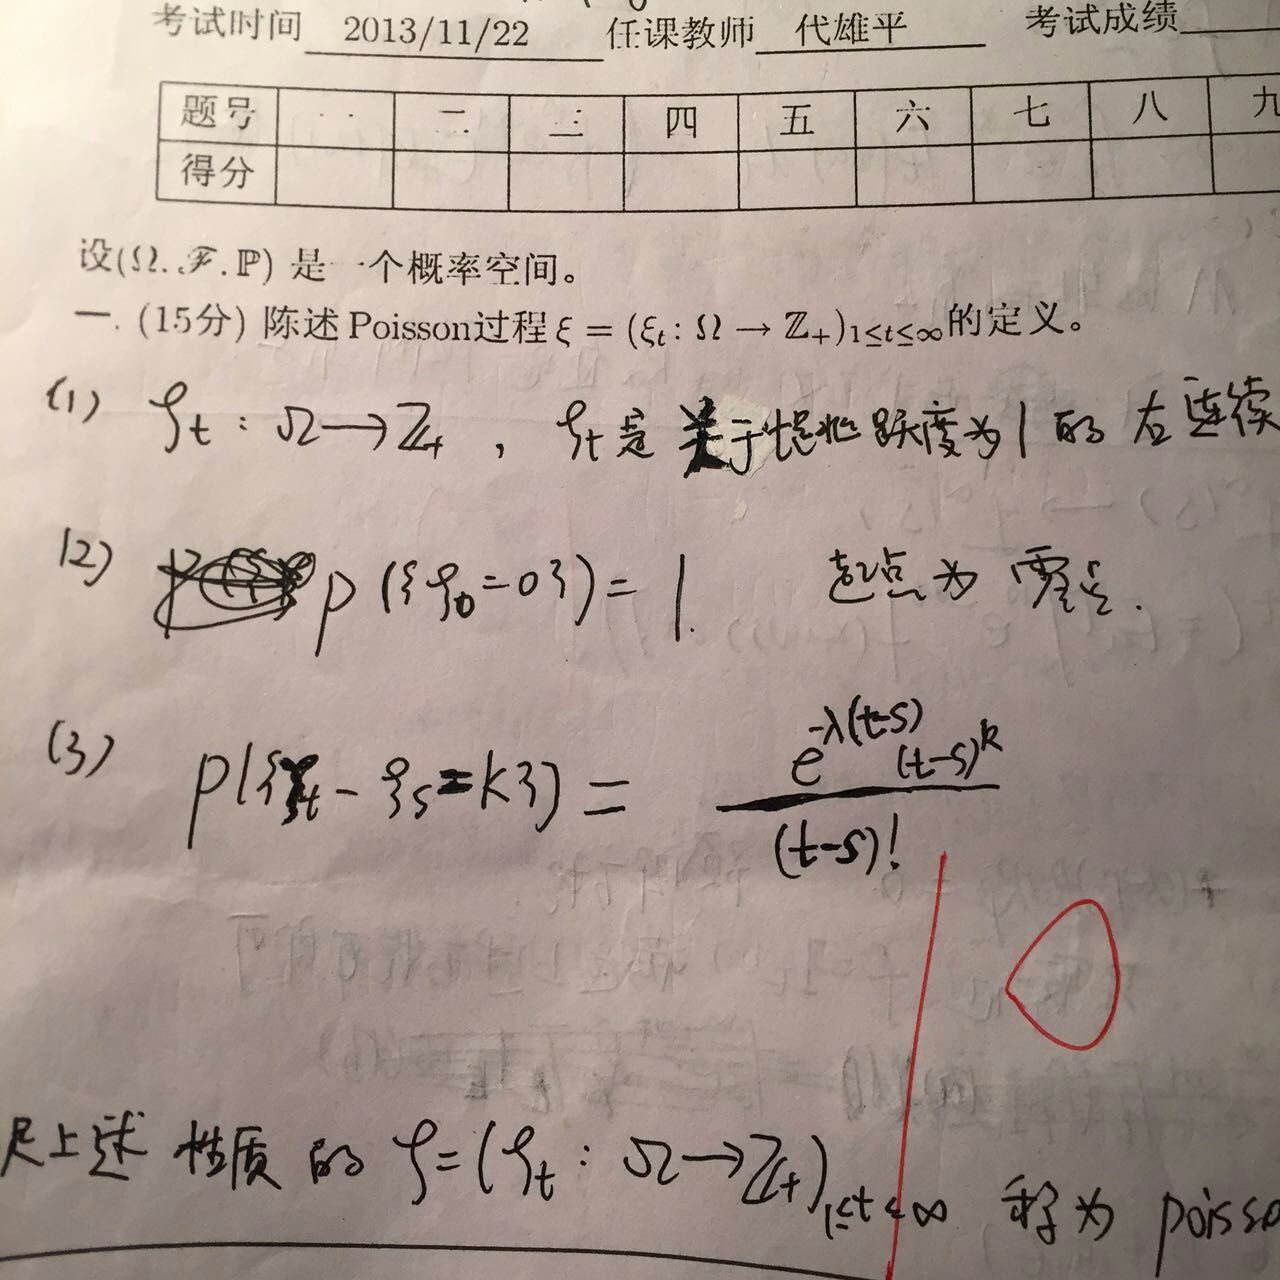 考试时间 2013/11/22 任课教师 代雄平 考试成绩
题号 一 二 三 四 五 六 七 八 九
得分
设(Ω, ℱ, ℙ) 是一个概率空间。
一. (15分) 陈述Poisson过程 ξ = (ξt : Ω → ℤ+)1≤t≤∞的定义。
(1) ξt : Ω → Z+ , ξt 是关于 跃度为1的右连续
(2) P({ξ0=0})=1. 起点为零点.
(3) P({ξt - ξs = k}) = e^{-λ(t-s)} (t-s)^k / (t-s)!
10
足上述性质的 ξ=(ξt : Ω→Z+)1≤t<∞ 称为 poisso